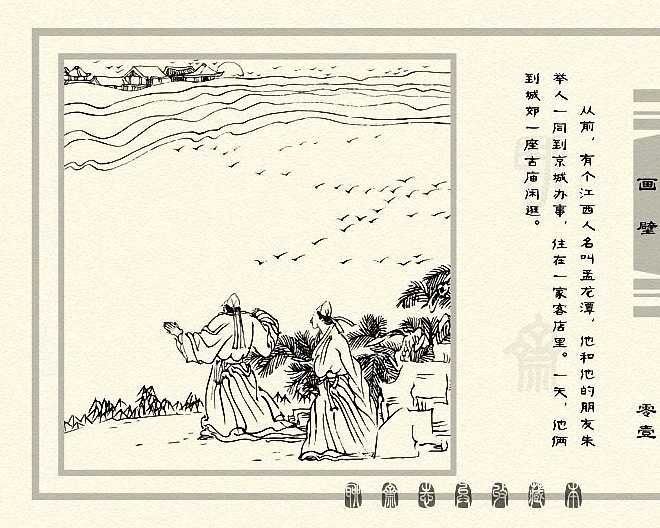 画壁
零壹
从前，有个江西人名叫孟龙潭，他和他的朋友朱
举人一同到京城办事，住在一家客店里。一天，他俩
到城郊一座古庙闲逛。
聊斋志异收藏本